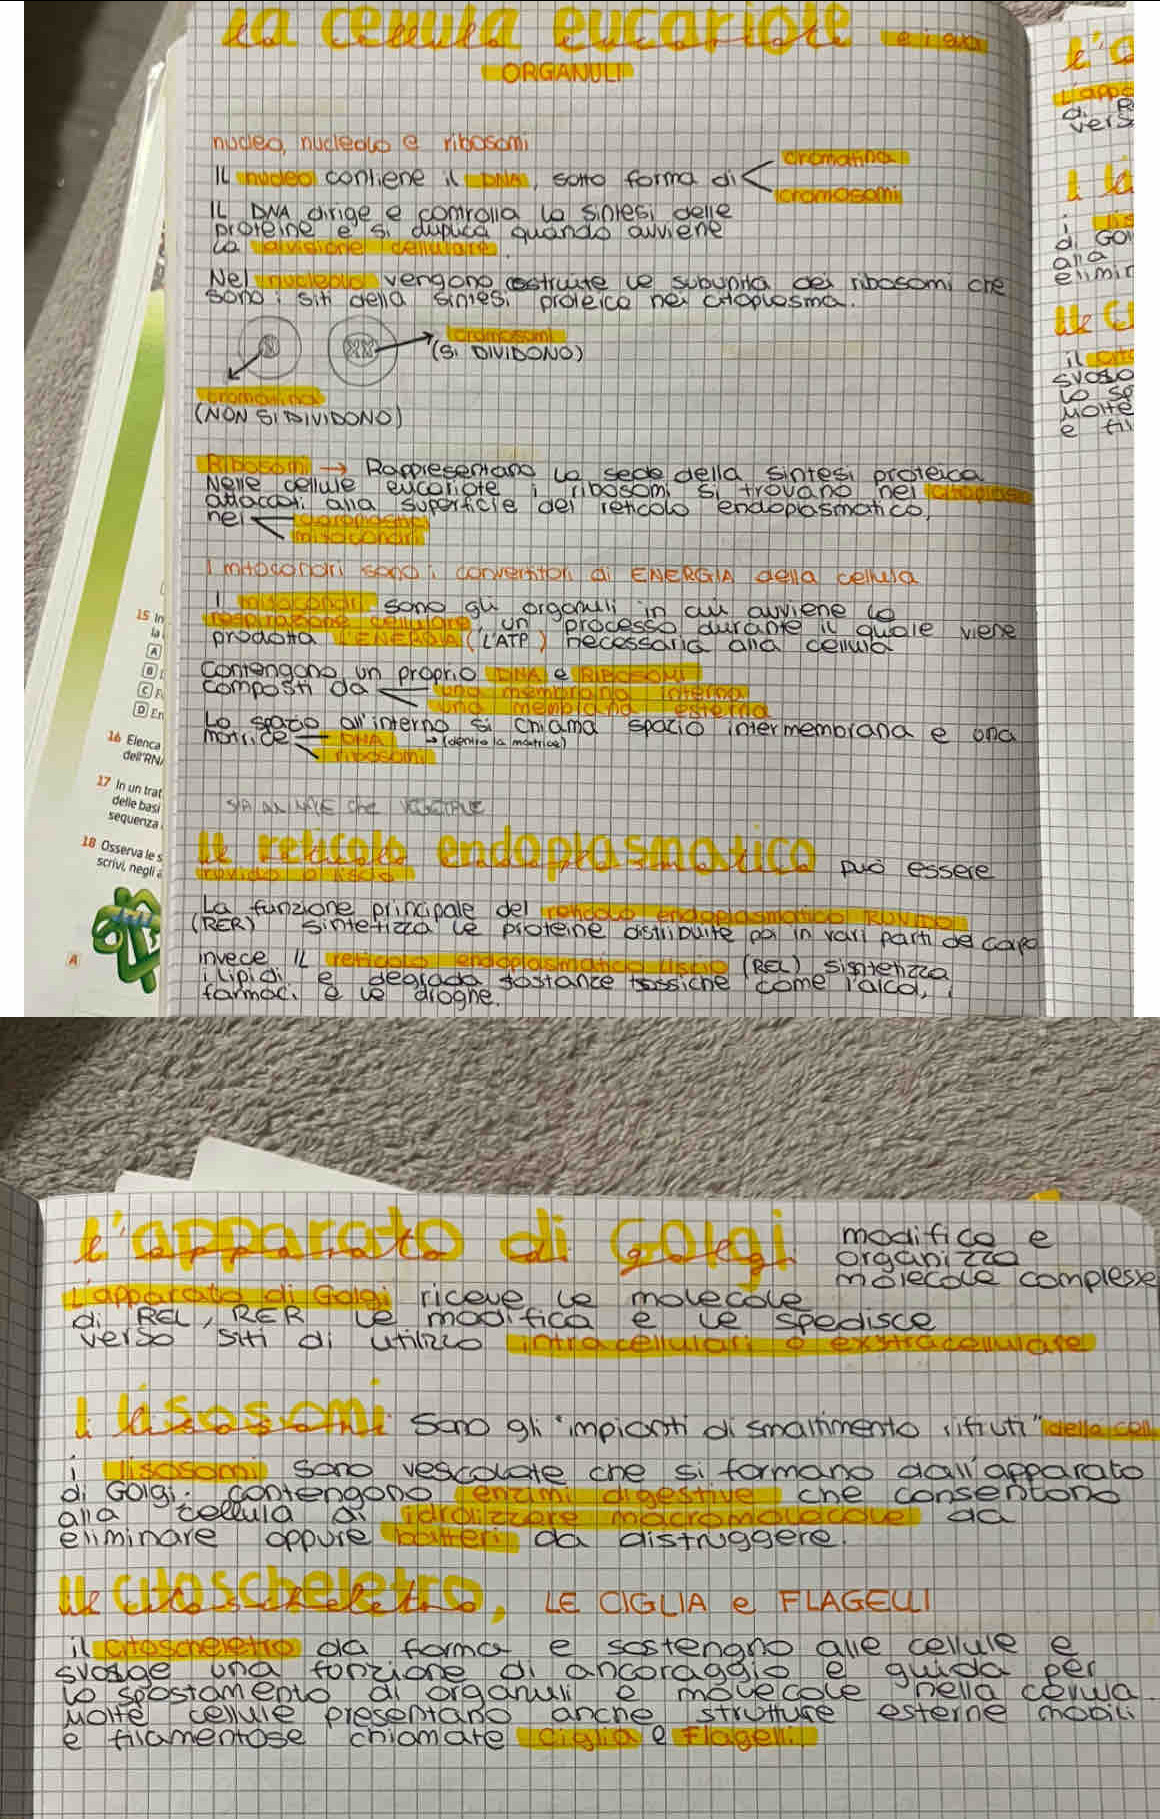 la cellula eucariote e i suoi
ORGANULI
nucleo, nucleolo e ribosomi
IL nucleo contiene il DNA, sotto forma di
cromatina
cromosomi
IL DNA dirige e controlla la sintesi delle
proteine e si duplica quando avviene
la divisione cellulare.
Nel nucleolo vengono costruite le subunità dei ribosomi che
sono i siti della sintesi proteica nel citoplasma.
cromosomi
(SI DIVIDONO)
cromatina
(NON SI DIVIDONO)
Ribosomi → Rappresentano la sede della sintesi proteica
Nelle cellule eucariote i ribosomi si trovano nel citoplasma
attaccati alla superficie del reticolo endoplasmatico,
nei
cloroplasti
mitocondri
I mitocondri sono i convertitori di ENERGIA della cellula
I mitocondri sono gli organuli in cui avviene la
respirazione cellulare, un processo durante il quale viene
prodotta L'ENERGIA (L'ATP) necessaria alla cellula
Contengono un proprio DNA e RIBOSOMI
composti da
una membrana interna
una membrana esterna
Lo spazio all'interno si chiama spazio intermembrana e una
matrice
DNA
(dentro la matrice)
ribosomi
SIA ANIMALE che VEGETALE
Il reticolo endoplasmatico può essere
ruvido o liscio
La funzione principale del reticolo endoplasmatico RUVIDO
(RER) sintetizza le proteine distribuite poi in vari parti del corpo
invece IL reticolo endoplasmatico liscio (REL) sintetizza
i lipidi e degrada sostanze tossiche come l'alcol, i
farmaci e le droghe.
15 In
la
A
B
C
D En
16 Elenca
dell'RNA
17 In un trat
delle basi
sequenza
18 Osserva le s
scrivi, negli
A
l'apparato di Golgi modifica e
organizza
molecole complesse
L'apparato di Golgi riceve le molecole
di REL, RER le modifica e le spedisce
verso siti di utilizzo intracellulari o exstracellulare
i lisosomi sono gli "impianti di smaltimento rifiuti" della cell
i lisosomi sono vescolate che si formano dall'apparato
di Golgi. contengono enzimi digestive che consentono
alla cellula di idrolizzare macromolecole da
eliminare oppure batteri da distruggere.
il citoscheletro, LE CIGLIA e FLAGELLI
il citoscheletro da forma e sostengno alle cellule e
svolge una funzione di ancoraggio e guida per
lo spostamento di organuli e molecole nella cellula.
Molte cellule presentano anche strutture esterne mobili
e filamentose chiamate ciglia e flagelli